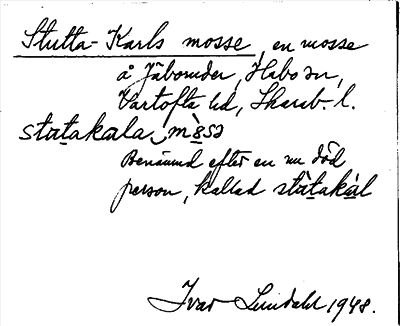 Stutta-Karls mosse, en mosse
å Jäboruder, Habo sn,
Vartofta hd, Skarab. l.
statakala mòsa
Benämnd efter en nu död
person, kallad stàtakál
Ivar Lundahl 1948.